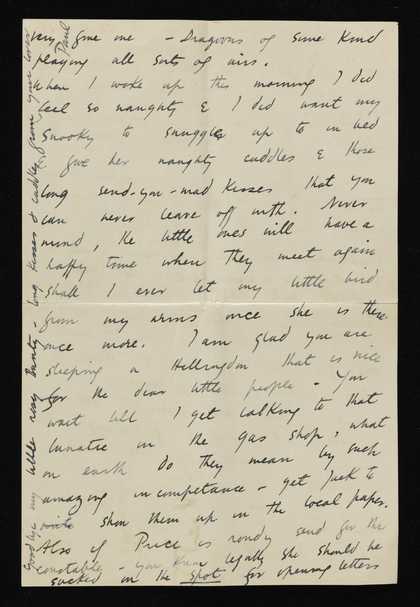 very fine one - Dragoons of some kind
playing all sorts of airs.
When I woke up this morning I did
feel so naughty & I did want my
Snooky to snuggle up to in bed
& give her naughty cuddles & those
long send-you-mad kisses that you
can never leave off with. Never
mind, the little ones will have a
happy time when they meet again
shall I ever let my little bird
from my arms once she is there
once more. I am glad you are
sleeping in that is nice
for the dear little people - You
wait till I get talking to that
lunatic in the gas shop, what
on earth do they mean by such
amazing incompetance - get Jack to
write show them up in the local paper.
Also if Price is rowdy send for the
constable - you know legally she should be
sacked on the spot for opening letters
Goodbye my little rosy - long kisses & cuddles from your lover
Paul